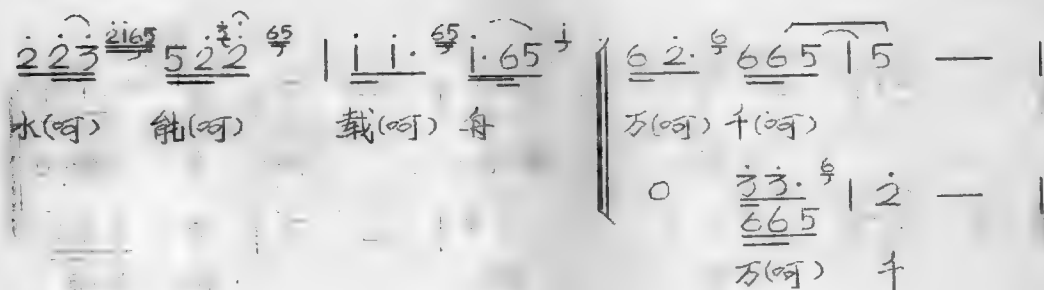 2̇ 2̇3̇ 2̇1̇65 5 2̇ 3̇ 2̇ 65 | 1̇ 1̇· 65 1̇·65 1̇ 6 2̇· 6 665 | 5 — |
水(呵) 能(呵) 载(呵) 舟 万(呵) 千(呵)
0 3̇3̇· 6 | 2̇ — |
665
万(呵) 千